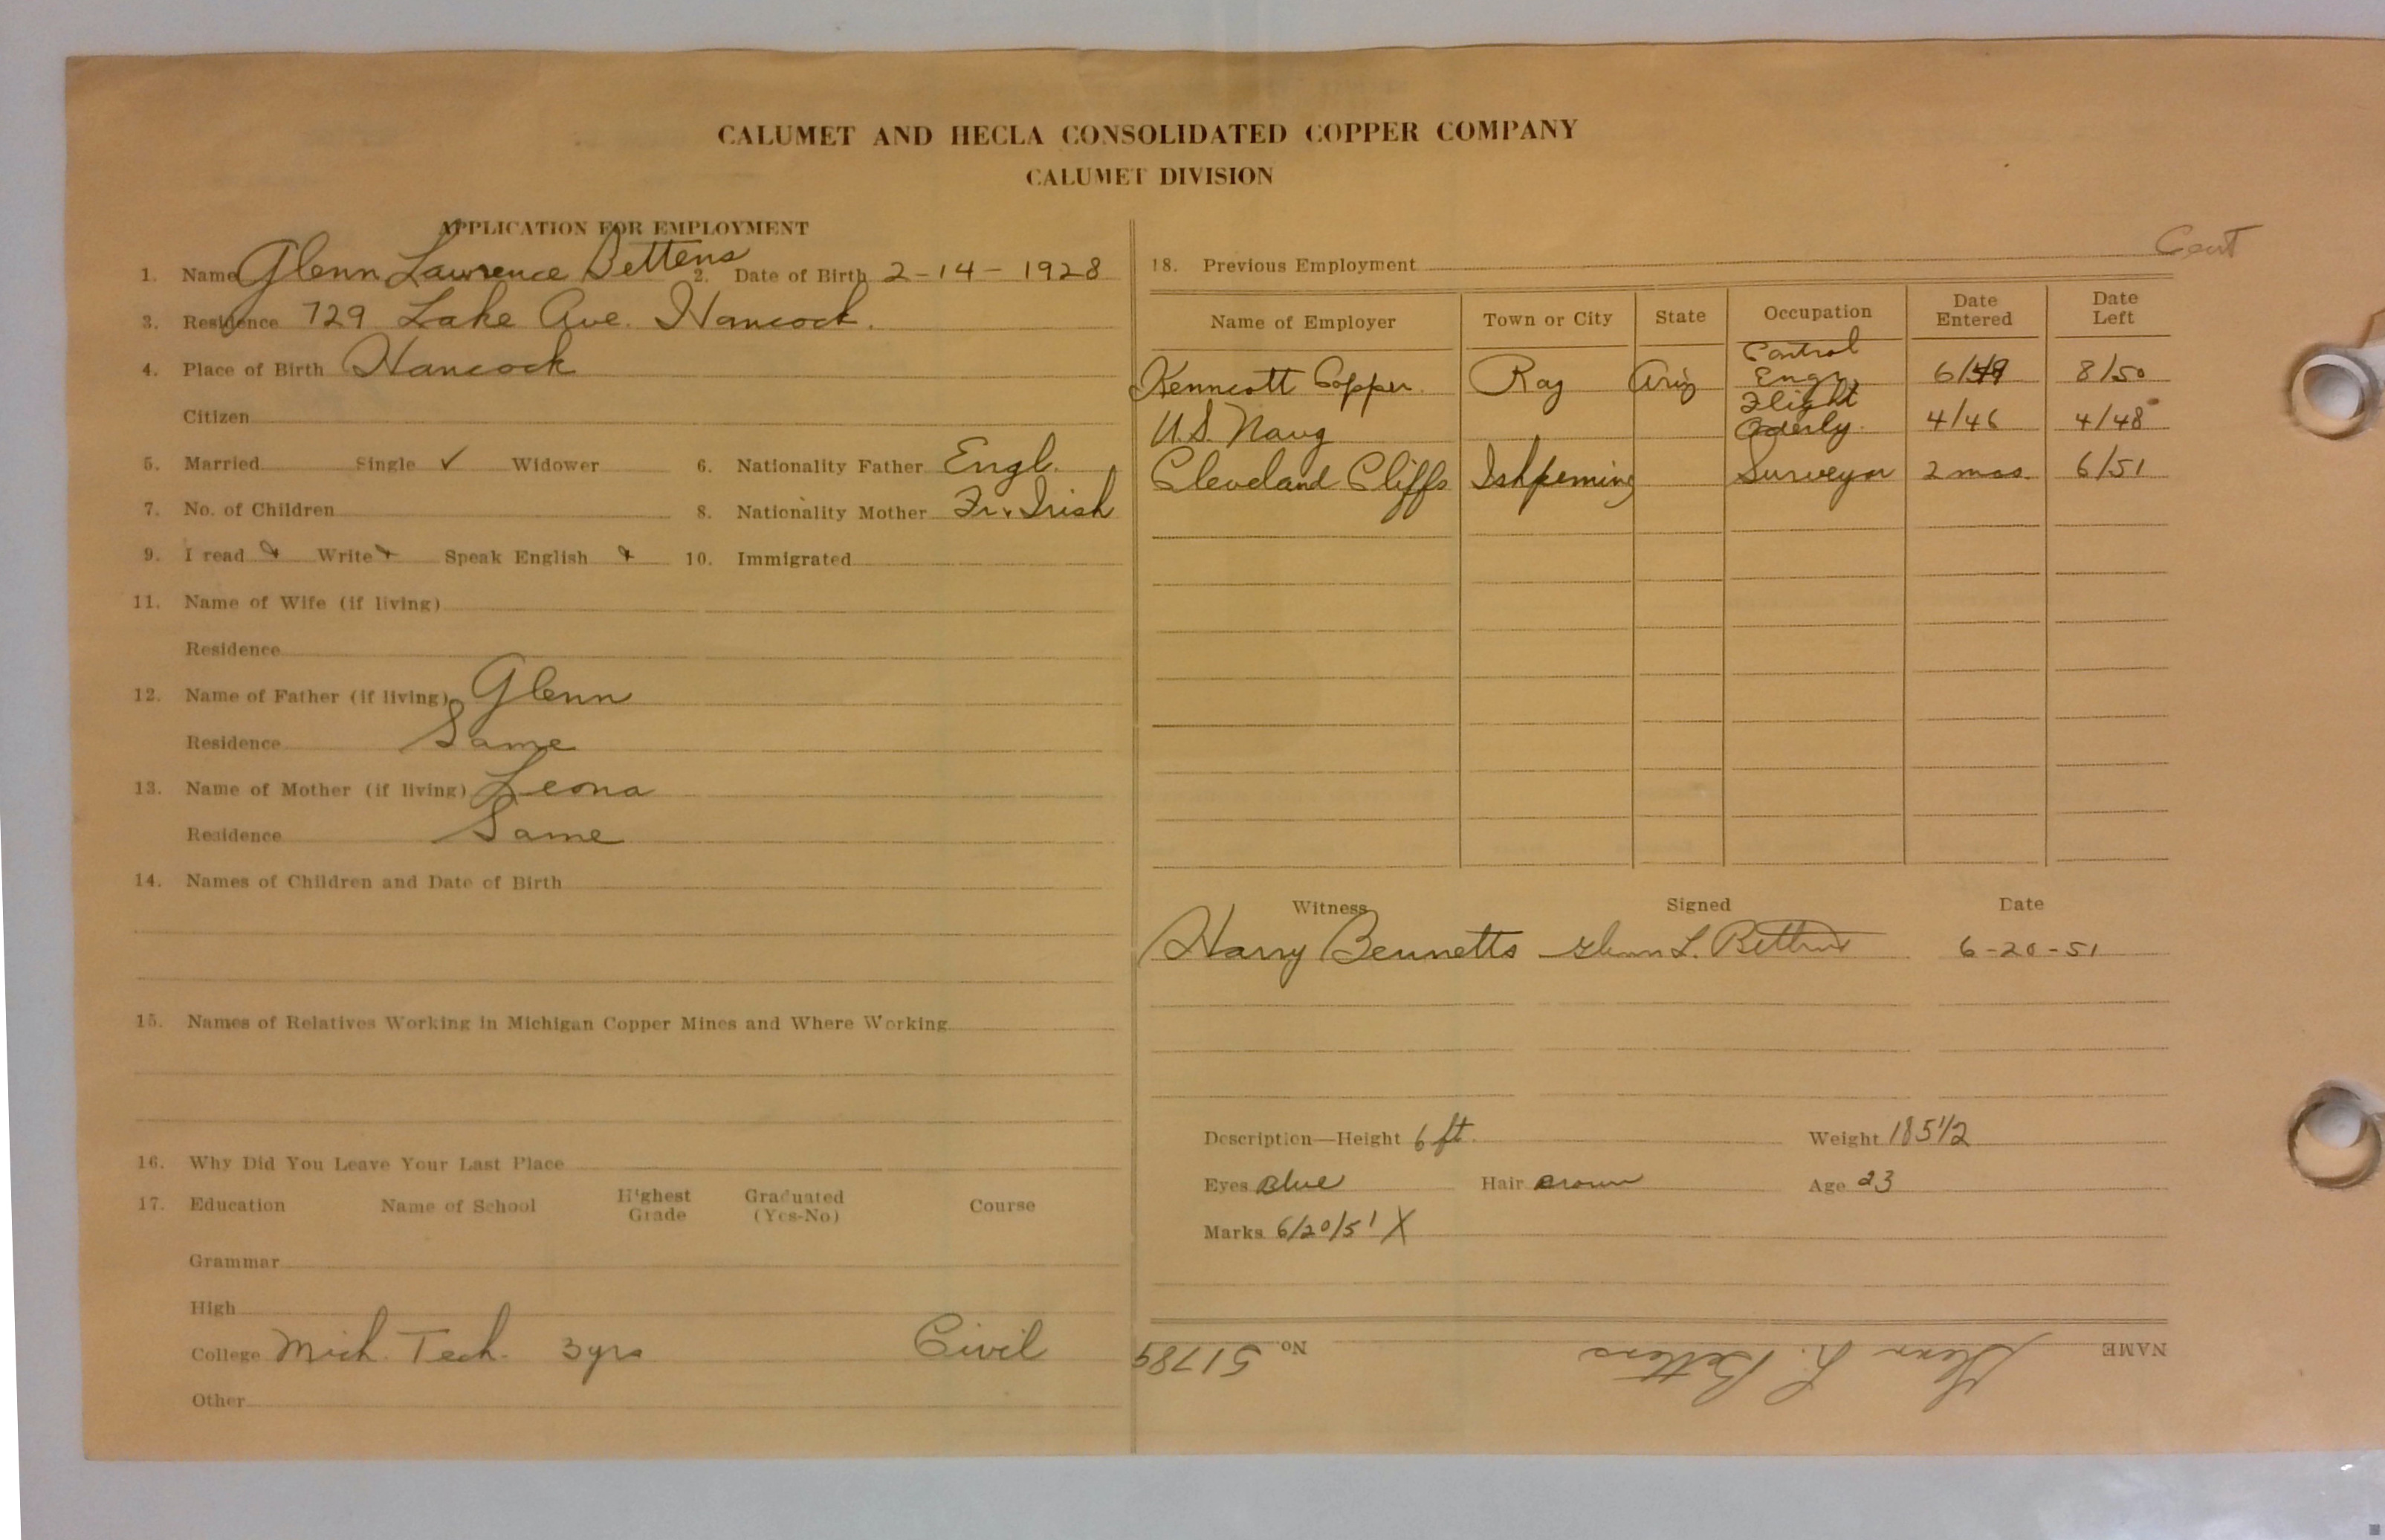 CALUMET AND HECLA CONSOLIDATED COPPER COMPANY
CALUMET DIVISION
APPLICATION FOR EMPLOYMENT
1. Name Glenn Lawrence Bettens 2. Date of Birth 2-14-1928
3. Residence 729 Lake Ave. Hancock.
4. Place of Birth Hancock
Citizen
5. Married Single ✓ Widower 6. Nationality Father Engl.
7. No. of Children 8. Nationality Mother Fr. Irish
9. I read Write Speak English 10. Immigrated
11. Name of Wife (if living)
Residence
12. Name of Father (if living) Glenn
Residence Same
13. Name of Mother (if living) Leona
Residence Same
14. Names of Children and Date of Birth
15. Names of Relatives Working in Michigan Copper Mines and Where Working
16. Why Did You Leave Your Last Place
17. Education Name of School Highest Grade Graduated (Yes-No) Course
Grammar
High
College Mich. Tech. 3 yrs Civil
Other
18. Previous Employment
Name of Employer Town or City State Occupation Date Entered Date Left
Kenncott Copper Ray Ariz Control Engr. 6/49 8/50
U.S. Navy Flight Oderly 4/46 4/48
Cleveland Cliffs Ishpeming Surveyor 2 mos. 6/51
Witness Signed Date
Harry Bennetts Glenn L. Bettens 6-20-51
Description—Height 6 ft. Weight 185 1/2
Eyes Blue Hair Brown Age 23
Marks 6/20/51 X
NAME Glenn L. Bettens No. 51789